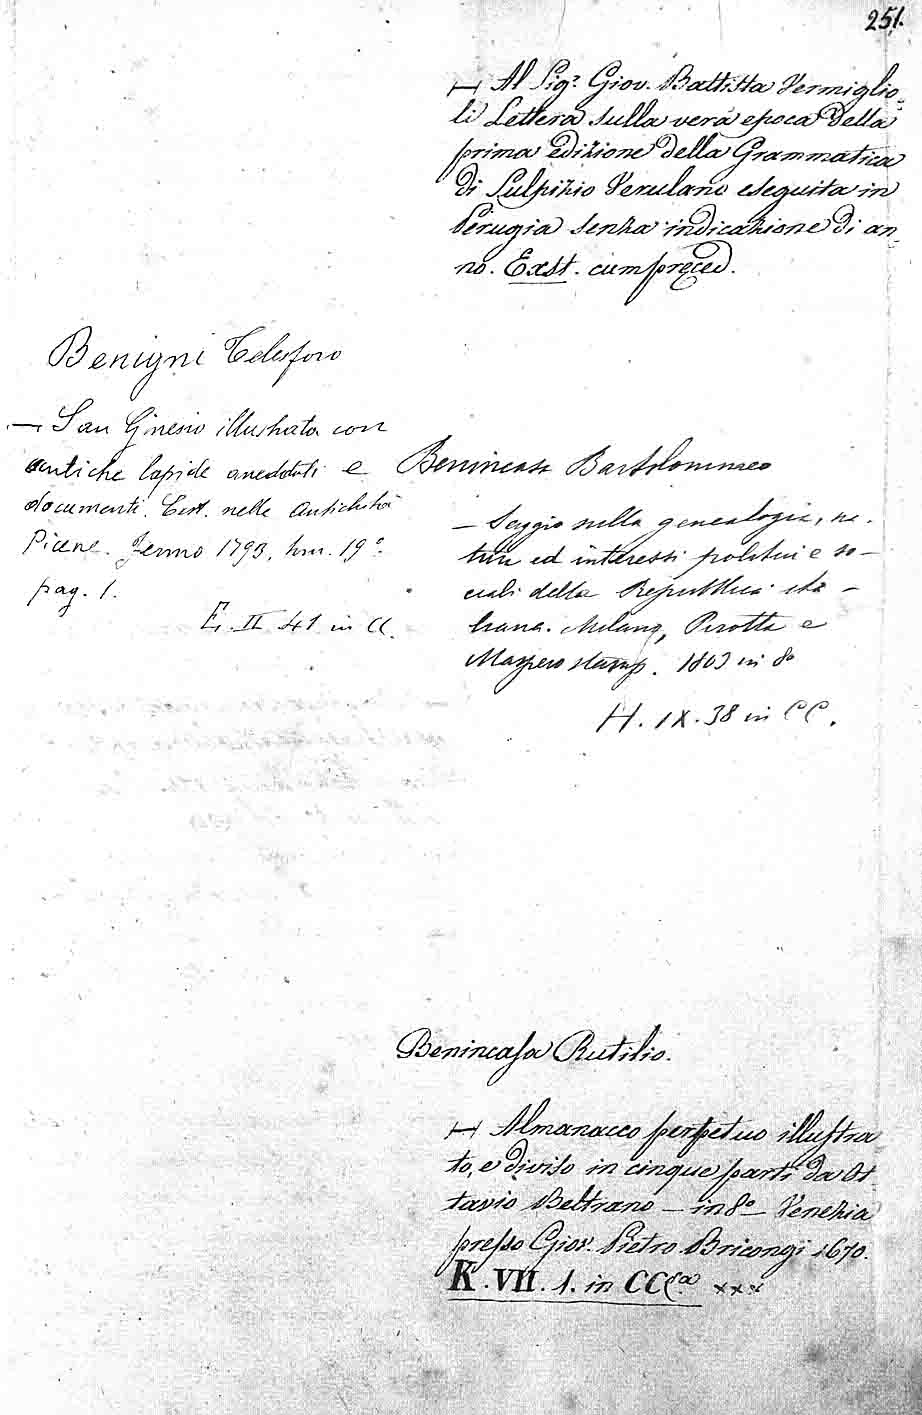 251.
— Al Sig.r Giov. Battista Vermiglio-
li Lettera sulla vera epoca della
prima edizione della Grammatica
di Sulpizio Verulano eseguita in
Perugia senza indicazione di an-
no. Exst. cum præced.
Benigni Telesforo
— San Ginesio illustrata con
antiche lapide anedoti e
documenti. Exst. nelle Antichità
Picene. Fermo 1793, tom. 19º.
pag. 1.
E. II 41 in CC.
Benincasa Bartolommeo
— Saggio sulla genealogia, na-
tura ed interessi politici e so-
ciali della Repubblica ita-
liana. Milano, Pirotta e
Maspero stamp. 1803 in 8º
H. IX. 38 in CC.
Benincasa Rutilio.
— Almanacco perpetuo illustra
to, e diviso in cinque parti da Ot
tavio Beltrano — in 8º — Venezia
presso Giov. Pietro Bricongi 1670.
K. VII. 1. in CC xxx